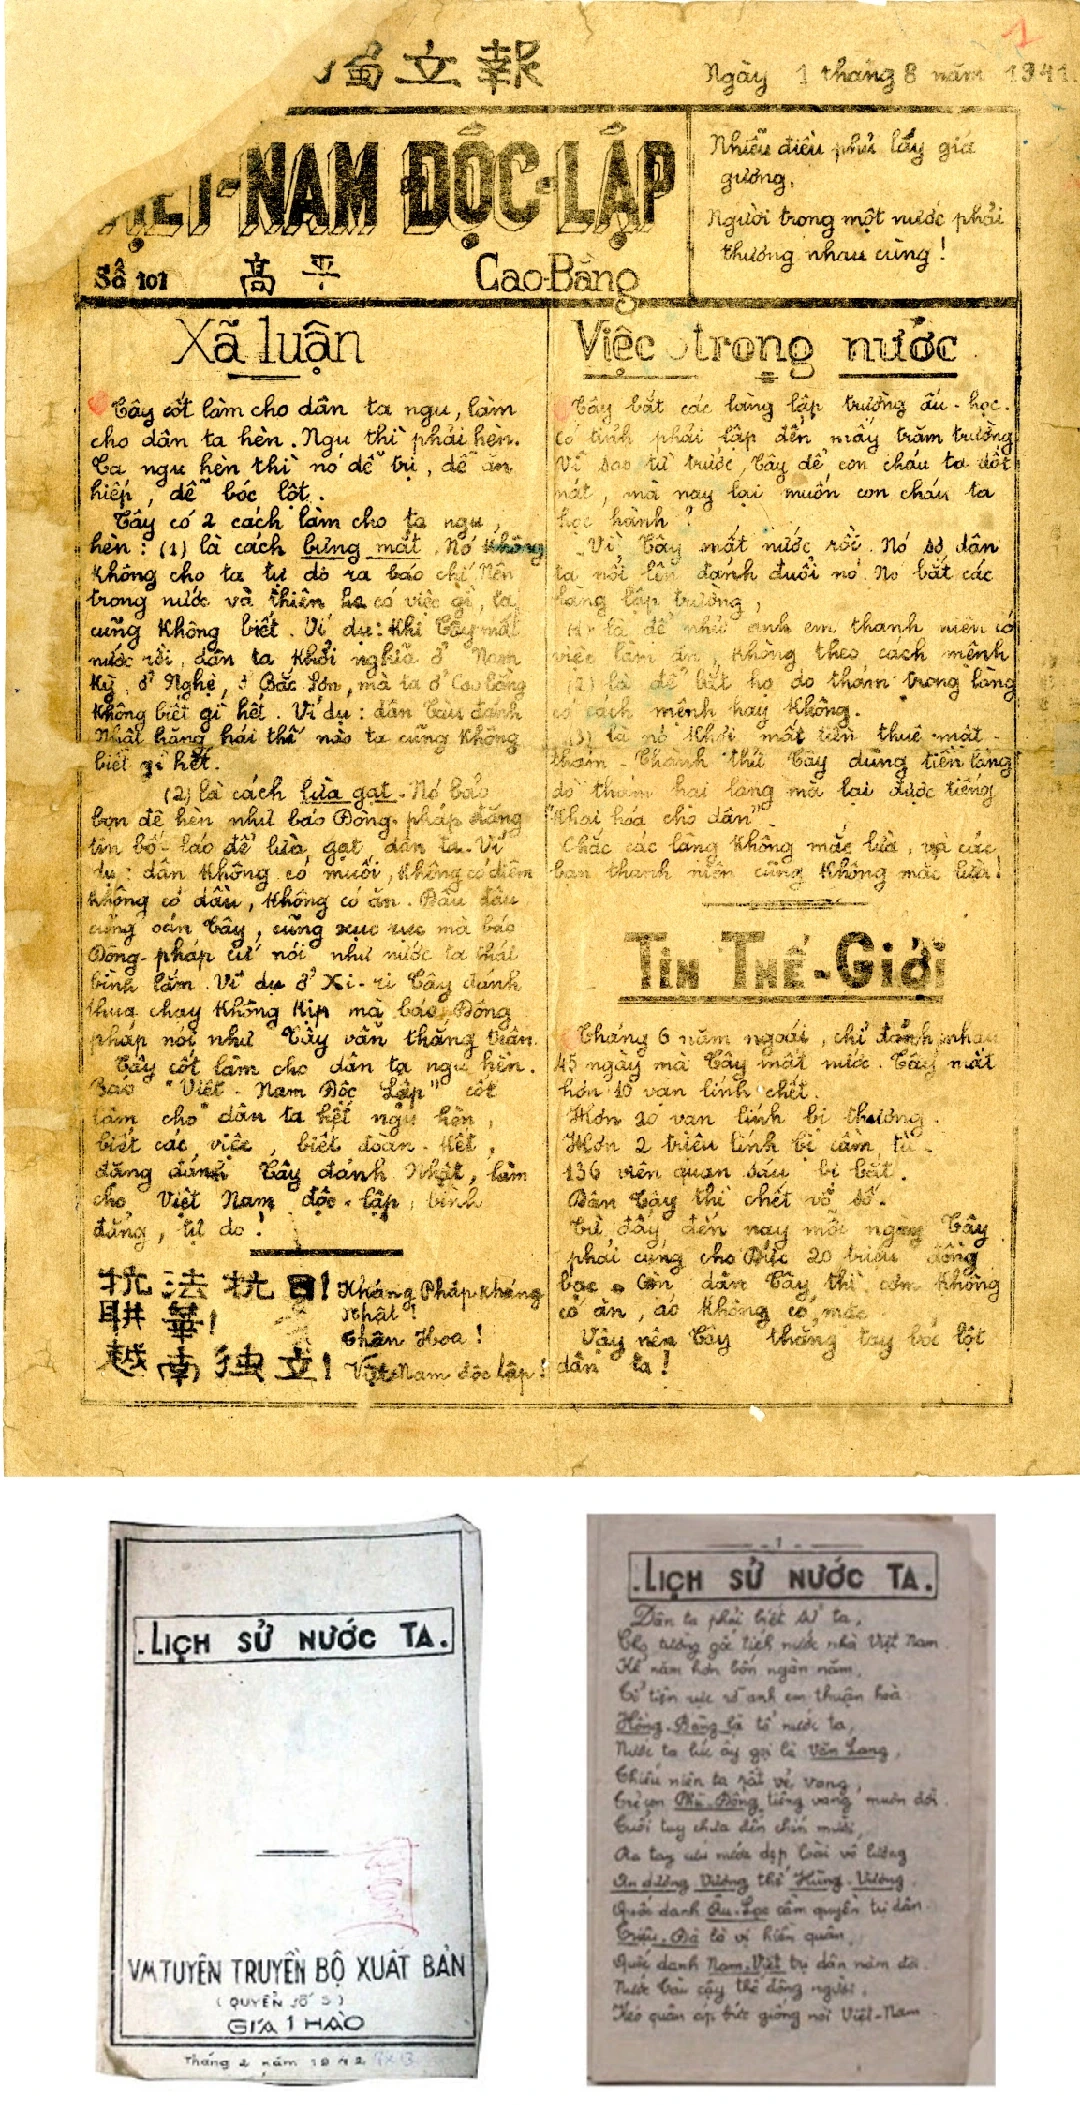 獨立報
Ngày 1 tháng 8 năm 1941.
1
VIỆT-NAM ĐỘC-LẬP
Số 101 高平 Cao-Bằng
Nhiễu điều phủ lấy giá
gương,
Người trong một nước phải
thương nhau cùng!
Xã luận
Tây cốt làm cho dân ta ngu, làm
cho dân ta hèn. Ngu thì phải hèn.
Ta ngu hèn thì nó dễ trị, dễ ăn
hiếp, dễ bóc lột.
Tây có 2 cách làm cho ta ngu,
hèn: (1) là cách bưng mắt. Nó không
không cho ta tự do ra báo chí. Nên
trong nước và thiên hạ có việc gì, ta
cũng không biết. Ví dụ: Khi Tây mất
nước rồi, dân ta khởi nghĩa ở Nam
Kỳ, ở Nghệ, ở Bắc Sơn, mà ta ở Cao bằng
không biết gì hết. Ví dụ: dân Tàu đánh
Nhật hăng hái thế nào ta cũng không
biết gì hết.
(2) là cách lừa gạt. Nó bảo
bọn đê hèn như báo Đông-pháp đăng
tin bố-láo để lừa gạt dân ta. Ví
dụ: dân không có muối, không có diêm
không có dầu, không có ăn. Đâu đâu
cũng oán Tây, cũng xục xục mà báo
Đông-pháp cứ nói như nước ta thái
bình lắm. Ví dụ ở Xi-ri Tây đánh
thua chạy không kịp mà báo Đông
pháp nói như Tây vẫn thắng trận.
Tây cốt làm cho dân ta ngu hèn.
Báo "Việt-Nam Độc Lập" cốt
làm cho dân ta hết ngu hèn,
biết các việc, biết đoàn-kết,
đặng đánh Tây đánh Nhật, làm
cho Việt Nam độc-lập, bình
đẳng, tự do!
抗法抗日! Kháng Pháp kháng
Nhật!
聯華! Thân Hoa!
越南独立! Việt-Nam độc lập!
Việc trong nước
Tây bắt các làng lập trường ấu-học.
Có tỉnh phải lập đến mấy trăm trường
Vì sao từ trước, Tây để con cháu ta dốt
nát, mà nay lại muốn con cháu ta
học hành?
Vì, Tây mất nước rồi. Nó sợ dân
ta nổi lên đánh đuổi nó. Nó bắt các
làng lập trường,
(1) là để như anh em thanh niên có
việc làm ăn, không theo cách mệnh
(2) là để bắt họ do thám trong làng
có cách mệnh hay không.
(3) là nó khỏi mất tiền thuê mật-
thám. Thành thử Tây dùng tiền làng
do thám hại làng mà lại được tiếng
"Khai hóa cho dân".
Chắc các làng không mắc lừa, và các
bạn thanh niên cũng không mắc lừa!
TIN THẾ-GIỚI
Tháng 6 năm ngoái, chỉ đánh nhau
45 ngày mà Tây mất nước. Tây mất
hơn 10 vạn lính chết.
Hơn 20 vạn lính bị thương.
Hơn 2 triệu lính bị cầm tù.
136 viên quan sáu bị bắt.
Dân Tây thì chết vô số.
Từ đấy đến nay mỗi ngày Tây
phải cung cho Đức 20 triệu đồng
bạc. Còn dân Tây thì cơm không
có ăn, áo không có mặc.
Vậy nên Tây thẳng tay bóc lột
dân ta!
.LỊCH SỬ NƯỚC TA.
VM TUYÊN TRUYỀN BỘ XUẤT BẢN
(QUYỂN SỐ 3)
GIÁ 1 HÀO
Tháng 2 năm 1942
-1-
.LỊCH SỬ NƯỚC TA.
Dân ta phải biết sử ta,
Cho tường gốc tích nước nhà Việt Nam.
Kể năm hơn bốn ngàn năm,
Tổ tiên rực rỡ anh em thuận hoà.
Hồng-Bàng là tổ nước ta,
Nước ta lúc ấy gọi là Văn Lang,
Thiếu niên ta rất vẻ vang,
Trẻ con Phù-Đổng tiếng vang muôn đời.
Tuổi tuy chưa đến chín mười,
Ra tay cứu nước dẹp loài vô lương
An dương Vương thế Hùng-Vương,
Quốc danh Âu-Lạc cầm quyền trị dân.
Triệu-Đà là vị hiền quân,
Quốc danh Nam-Việt trị dân năm đời.
Nước Tàu cậy thế đông người,
Kéo quân áp bức giống nòi Việt-Nam